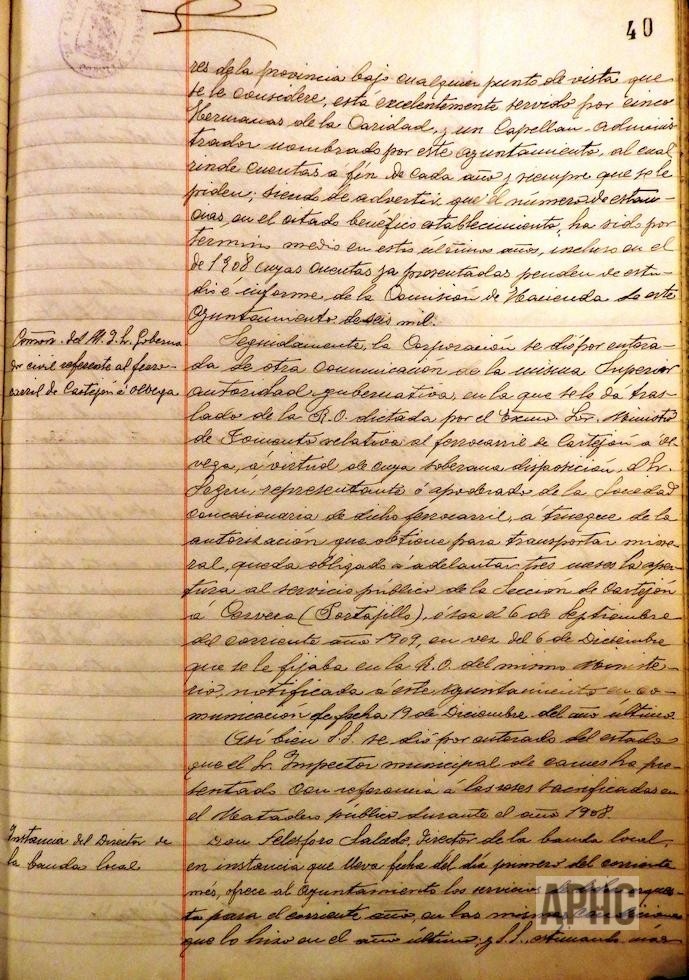 40
res de la provincia bajo cualquier punto de vista que
se le considere, está excelentemente servido por cinco
Hermanas de la Caridad, y un Capellan-Adminis-
trador nombrado por este Ayuntamiento, al cual
rinde cuentas a fin de cada año y siempre que se le
piden; siendo de advertir que el número de estan-
cias en el citado benéfico establecimiento, ha sido por
termino medio en estos ultimos años, incluso en el
de 1908 cuyas cuentas ya presentadas penden de estu-
dio é informe de la Comisión de Hacienda de este
Ayuntamiento de seis mil.
Comon. del M. I. Sr. Goberna
dor civil referente al ferro-
carril de Castejón á Olvega
Seguidamente, la Corporación se dió por entera-
da de otra comunicación de la misma Superior
autoridad gubernativa, en la que se le da tras-
lado de la R.O. dictada por el Excmo. Sr. Ministro
de Fomento relativa al ferrocarril de Castejón a Ol-
vega, á virtud de cuya soberana disposicion, el Sr.
Seguí, representante ó apoderado de la Sociedad
concesionaria de dicho ferrocarril, a trueque de la
autorización que obtiene para transportar mine-
ral, queda obligado á adelantar tres meses la aper-
tura al servicio público de la Sección de Castejón
á Cervera (Portajillo), ó sea el 6 de Septiembre
del corriente año 1909, en vez del 6 de Diciembre
que se le fijaba en la R.O. del mismo Ministe-
rio, notificada á este Ayuntamiento en co-
municación de fecha 19 de Diciembre del año último.
Asi bien S.S. se dió por enterado del estado
que el Sr. Inspector municipal de carnes ha pre-
sentado con referencia á las reses sacrificadas en
el Matadero público durante el año 1908.
Instancia del Director de
la banda local
Don Telesforo Salado, Director de la banda local,
en instancia que lleva fecha del día primero del corriente
més, ofrece al Ayuntamiento los servicios
ta para el corriente año, en las mismas condiciones
que lo hizo en el año último; y S.S.
APHC